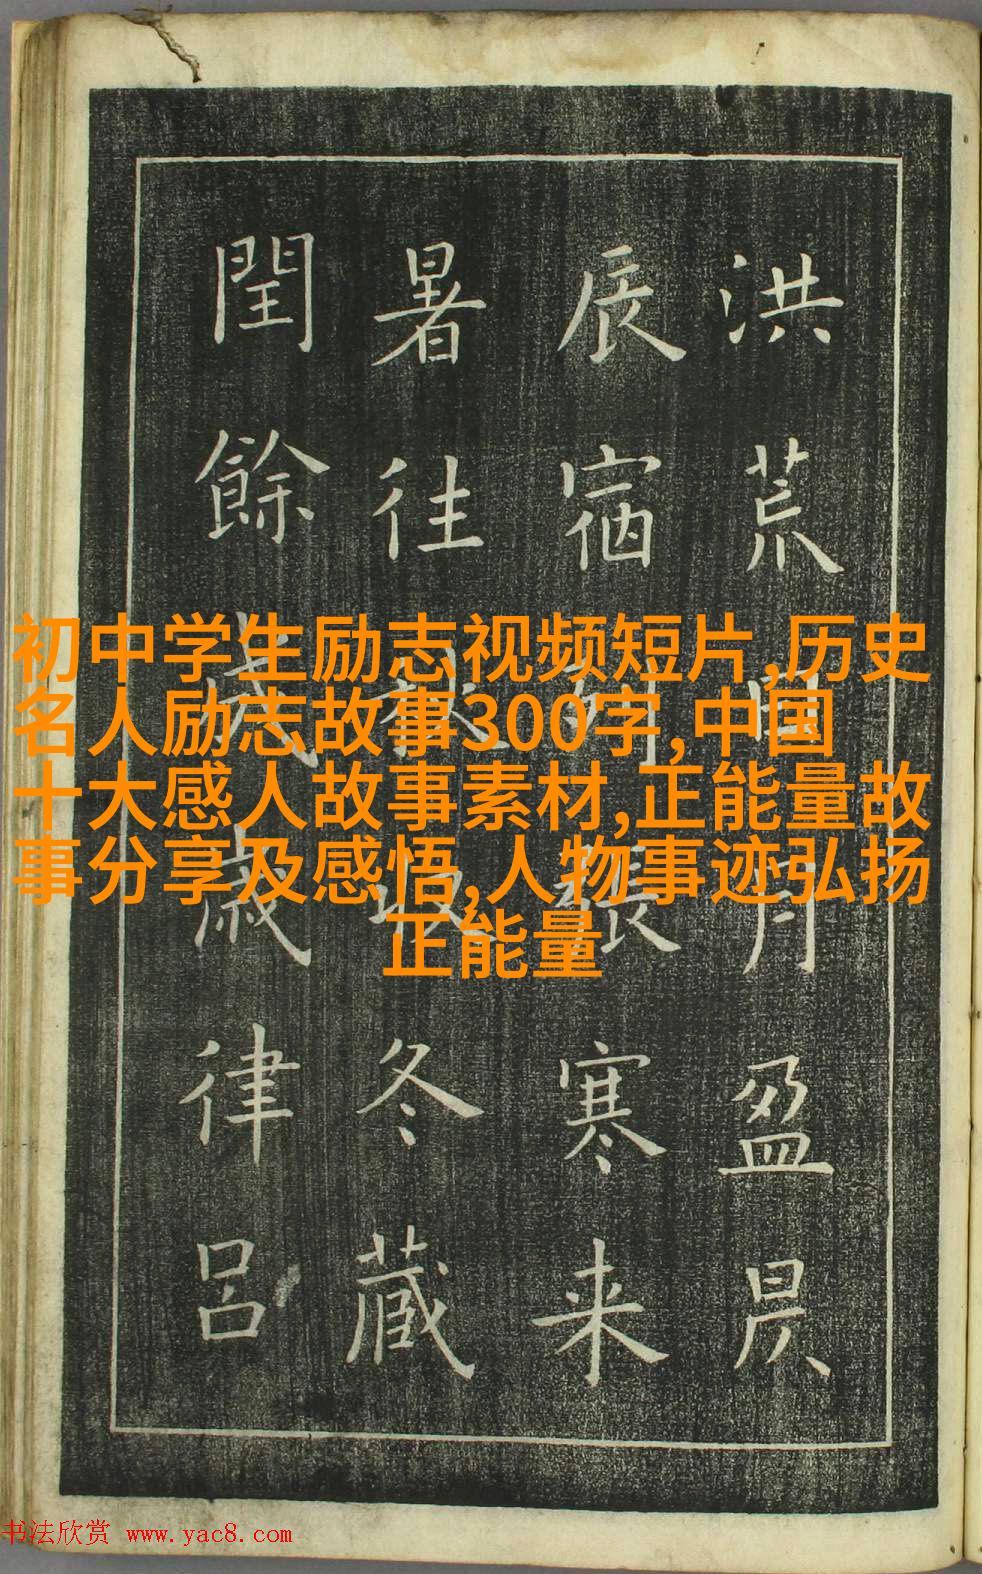 洪荒日月盈昃
辰宿列張寒来
暑往秋收冬藏
閏餘成歲律呂
初中学生励志视频短片,历史
名人励志故事300字,中国
十大感人故事素材,正能量故
事分享及感悟,人物事迹弘扬
正能量
书法欣赏 www.yac8.com